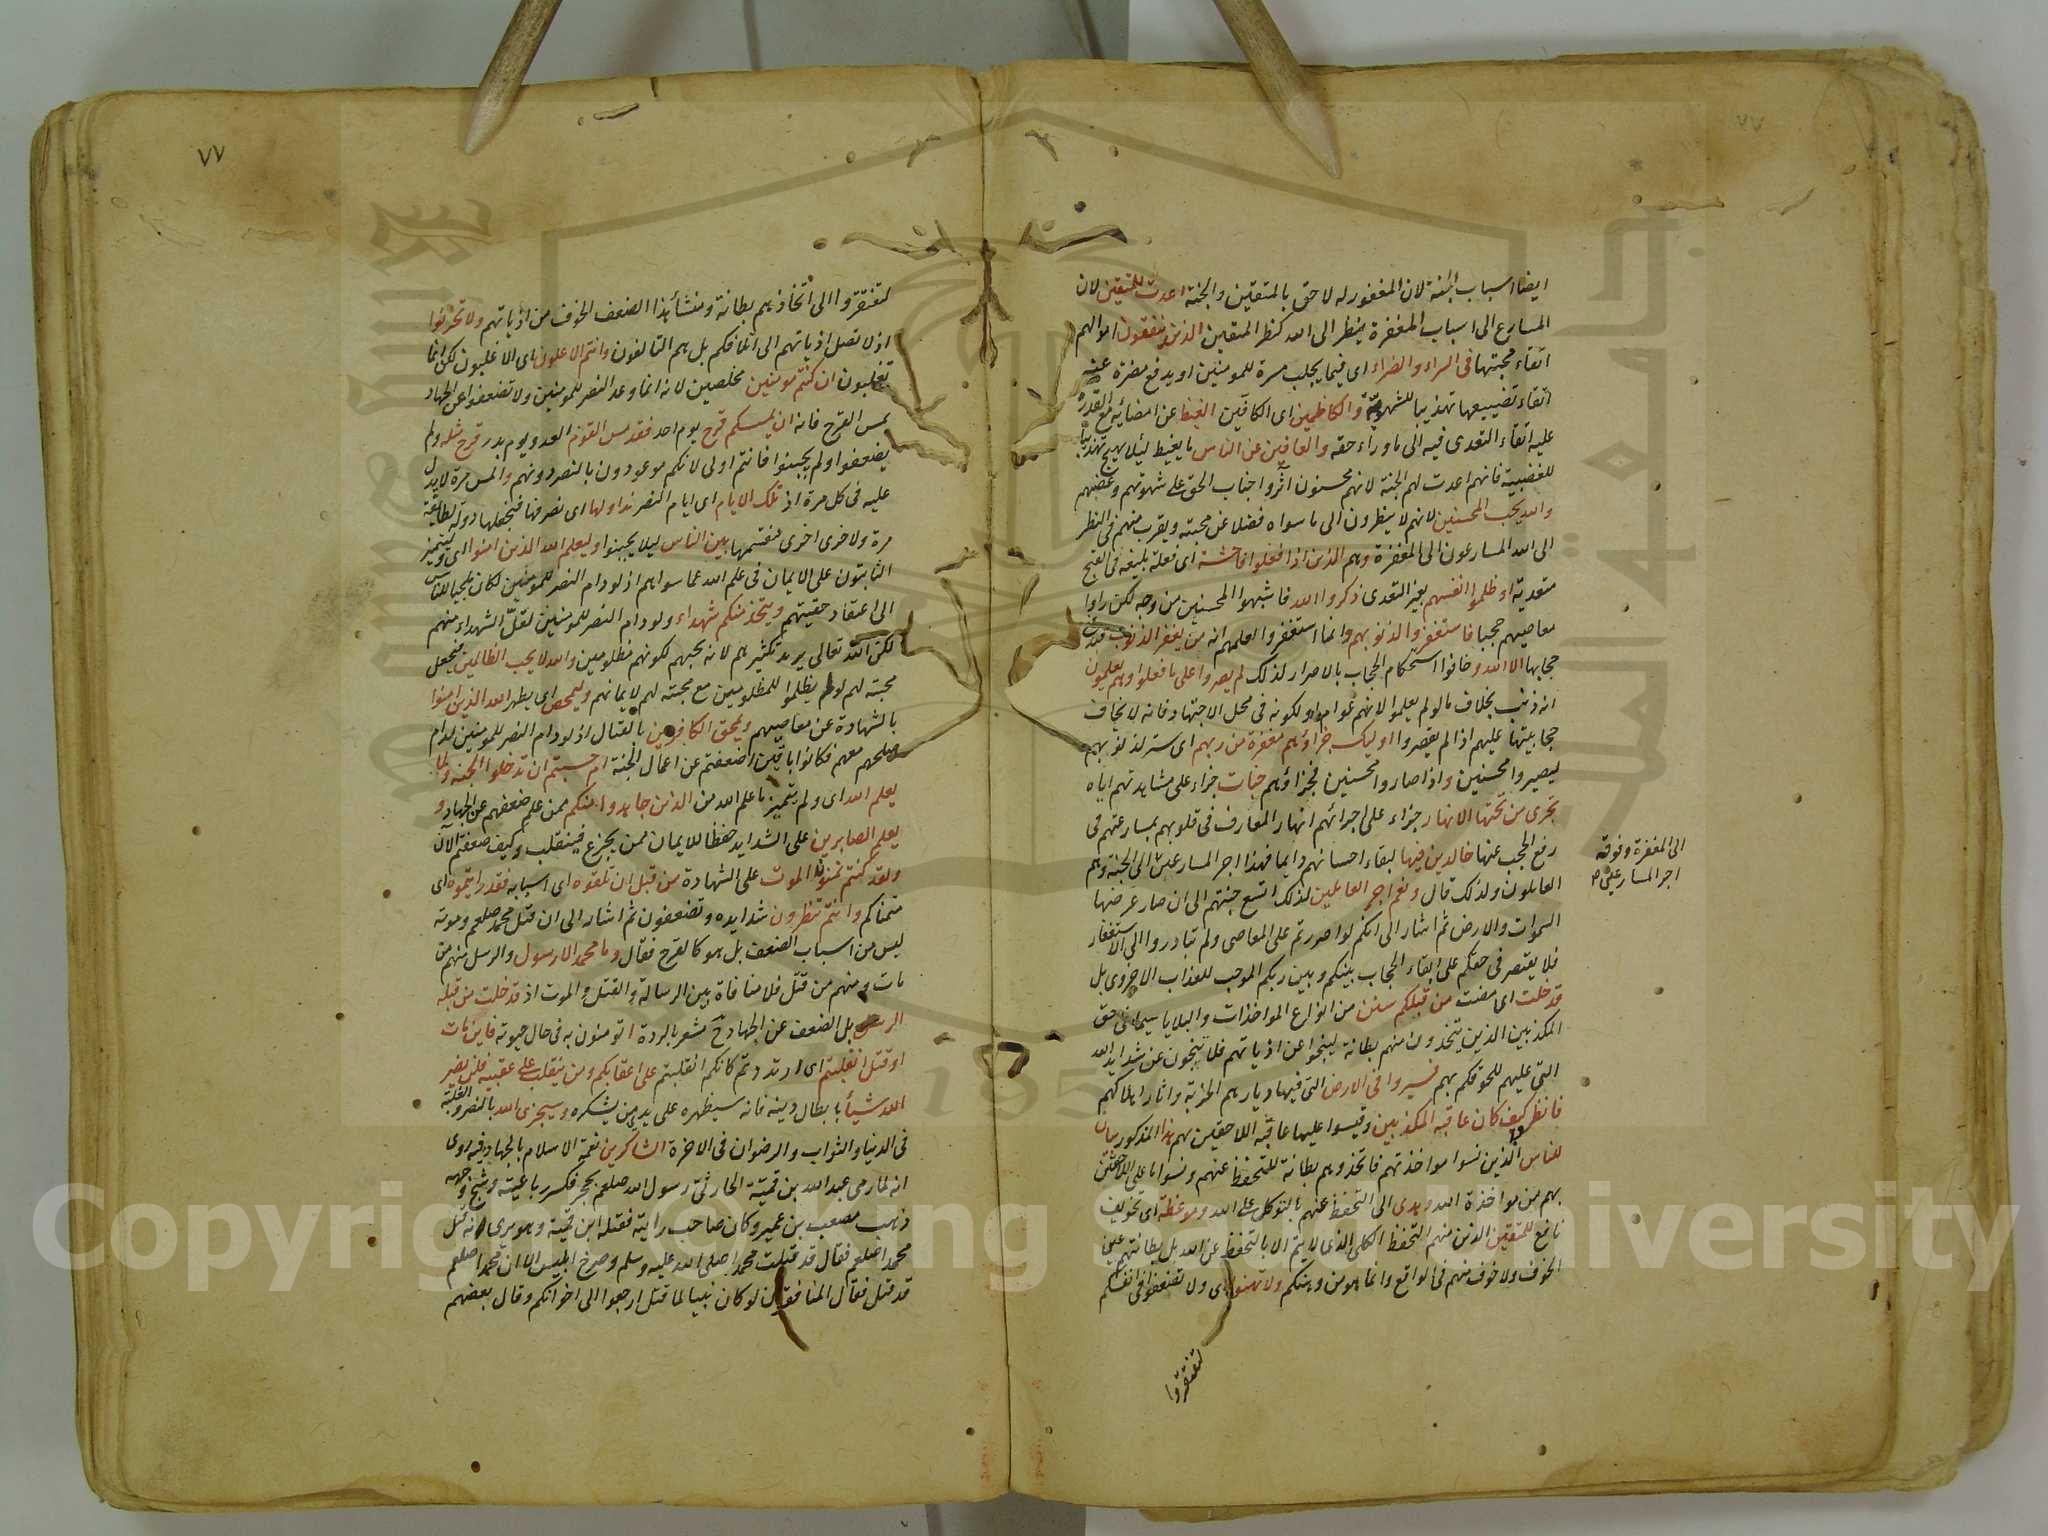 ايضا اسباب الجنة لان المغفور له لاحق بالمتقين والجنة اعدت للمتقين لان
المسارع الى اسباب المغفرة ينظر الى الله كنظر المتقين الذين ينفقون اموالهم
اتقاء محبتها فى السراء والضراء اى فيما يجلب مسرة للمومنين او يدفع مضرة عنه
اتقاء تضييعها تهذيبا للشهوية والكاظمين اى الكافين الغيظ عن امضائه مع القدرة
عليه اتقاء التعدى فيه الى ما وراء حقه والعافين عن الناس ما يغيظ ليلا يهيج تهذيبا
للغضبية فانهم اعدت لهم الجنة لانهم محسنون آثروا جناب الحق على شهوتهم وغضبهم
والله يحب المحسنين لانهم لا ينظرون الى ما سواه فضلا عن محبته ويقرب منهم فى النظر
الى الله المسارعون الى المغفرة وهم الذين اذا فعلوا فاحشة اى فعلة بليغة فى القبح
متعدية او ظلموا انفسهم بغير التعدى ذكروا الله فاشبهوا المحسنين من وجه لكن راوا
معاصيهم حجبا فاستغفروا لذنوبهم وانما استغفروا لعلمهم انه من يغفر الذنوب
حجابها الا الله وخافوا استحكام الحجاب بالاصرار لذلك لم يصروا على ما فعلوا وهم يعلمون
انه ذنب بخلاف ما لو لم يعلموا لانهم عوام او لكونه فى محل الاجتهاد فانه لا يخاف
حجابيتها عليهم اذا لم يقصروا اوليك جزاؤهم مغفرة من ربهم اى ستر لذنوبهم
ليصيروا محسنين واذا صاروا محسنين فجزاؤهم جنات جزاء على مشاهدتهم اياه
تجرى من تحتها الانهار جزاء على اجرائهم انهار المعارف فى قلوبهم بمسارعتهم فى
رفع الحجب عنها خالدين فيها لبقاء احسانهم دايما فهذا اجر المسارعين الى الجنة وهم
العاملون ولذلك قال ونعم اجر العاملين لذلك اتسع جنتهم الى ان صار عرضها
السموات والارض ثم اشار الى انكم لو اصررتم على المعاصى ولم تبادروا الى الاستغفار
فلا يقتصر فى حقكم على ابقاء الحجاب بينكم وبين ربكم الموجب للعذاب الاخروى بل
قد خلت اى مضت من قبلكم سنن من انواع المواخذات والبلايا سيما فى حق
المكذبين الذين يتخذون منهم بطانة لينجوا عن اذياتهم فلا ينجون عن شدايد الله
التى عليهم للحوقكم بهم فسيروا فى الارض التى فيها ديارهم الخربة واثار اهلاكهم
فانظر كيف كان عاقبة المكذبين وقيسوا عليها عاقبة اللاحقين بهم هذا المذكور بيان
للناس الذين نسوا مواخذتهم فاتخذوهم بطانة للتحفظ عنهم ونسوا ما على اللاحقين
بهم من مواخذة الله وهدى الى التحفظ عنهم بالتوكل على الله وموعظة اى تخويف
نافع للمتقين الذين منهم التحفظ الكلى الذى لا يتم الا بالتحفظ عن الله بل بطانتهم
الخوف ولا خوف منهم فى الواقع وانما هو من وهنكم ولا تهنوا اى ولا تضعفوا فى انفسكم
لتفتقروا
الى المغفرة وفوقه
اجر المسارعين
٧٧
لتفتقروا الى اتخاذهم بطانة ومنشأ هذا الضعف الخوف من اذياتهم ولا تحزنوا
اذ لا تصل اذياتهم الى اتلافكم بل هم التالفون وانتم الاعلون اى الاغلبون لكن انما
تغلبون ان كنتم مومنين مخلصين لانه انما وعد النصر للمومنين ولا تضعفوا عن الجهاد
لمس القرح فانه ان يمسسكم قرح يوم احد فقد مس القوم العدو يوم بدر قرح مثله ولم
يضعفوا ولم يجبنوا فانتم اولى لانكم موعودون بالنصر دونهم والمس مرة لا يدل
عليه فى كل مرة اذ تلك الايام اى ايام النصر نداولها اى نصرفها فنجعلها دولة لطائفة
مرة ولاخرى اخرى فنقسمها بين الناس ليلا يجبنوا وليعلم الله الذين امنوا اى وليتميز
الثابتون على الايمان فى علم الله عما سواهم اذ لو دام النصر للمومنين لكان ملجيا للناس
الى اعتقاد حقيتهم ويتخذ منكم شهداء ولو دام النصر للمومنين لقل الشهداء منهم
لكن الله تعالى يريد تكثيرهم لانه يحبهم لكونهم مظلومين والله لا يحب الظالمين فيجعل
محبته لهم لو لم يظلموا للمظلومين مع محبته لهم لايمانهم وليمحص اى يطهر الله الذين امنوا
بالشهادة عن معاصيهم ويمحق الكافرين بالقتال اذ لو دام النصر للمومنين لدام
صلحهم معهم فكانوا باقين اضعفتم عن اعمال الجنة ام حسبتم ان تدخلوا الجنة ولما
يعلم الله اى ولم يتميز ما علم الله من الذين جاهدوا منكم ممن علم ضعفهم عن الجهاد و
يعلم الصابرين على الشدايد حفظا للايمان ممن يجزع فينقلب وكيف ضعفتم الآن
ولقد كنتم تمنون الموت على الشهادة من قبل ان تلقوه اى اسبابه فقد رايتموه اى
متمناكم وانتم تنظرون شدايده وتضعفون ثم اشار الى ان قتل محمد صلعم وموته
ليس من اسباب الضعف بل هو كالقرح فقال وما محمد الا رسول والرسل منهم من
مات ومنهم من قتل فلا منافاة بين الرسالة والقتل والموت اذ قد خلت من قبله
الرسل بل الضعف عن الجهاد ح مشعر بالردة اتومنون به فى حال حيوته فاين مات
او قتل انقلبتم اى ارتددتم كانكم انقلبتم على اعقابكم ومن ينقلب على عقبيه فلن يضر
الله شيأ بابطال دينه فانه سيظهره على يدى من يشكره وسيجزى الله بالنصر والغلبة
فى الدنيا والثواب والرضوان فى الاخرة الشاكرين نعمة الاسلام بالجهاد فيه روى
انه لما رمى عبد الله بن قميئة الحارثى رسول الله صلعم بحجر فكسر رباعيته وشج وجهه
ذهب مصعب بن عمير وكان صاحب رايته فقتله ابن قميئة وهو يرى انه قتل
محمدا صلعم فقال قد قتلت محمدا صلى الله عليه وسلم وصرخ ابليس الا ان محمدا صلعم
قد قتل فقال المنافقون لو كان نبيا لما قتل ارجعوا الى اخوانكم وقال بعضهم
Copyright © King Saud University
جامعة الملك سعود
1957